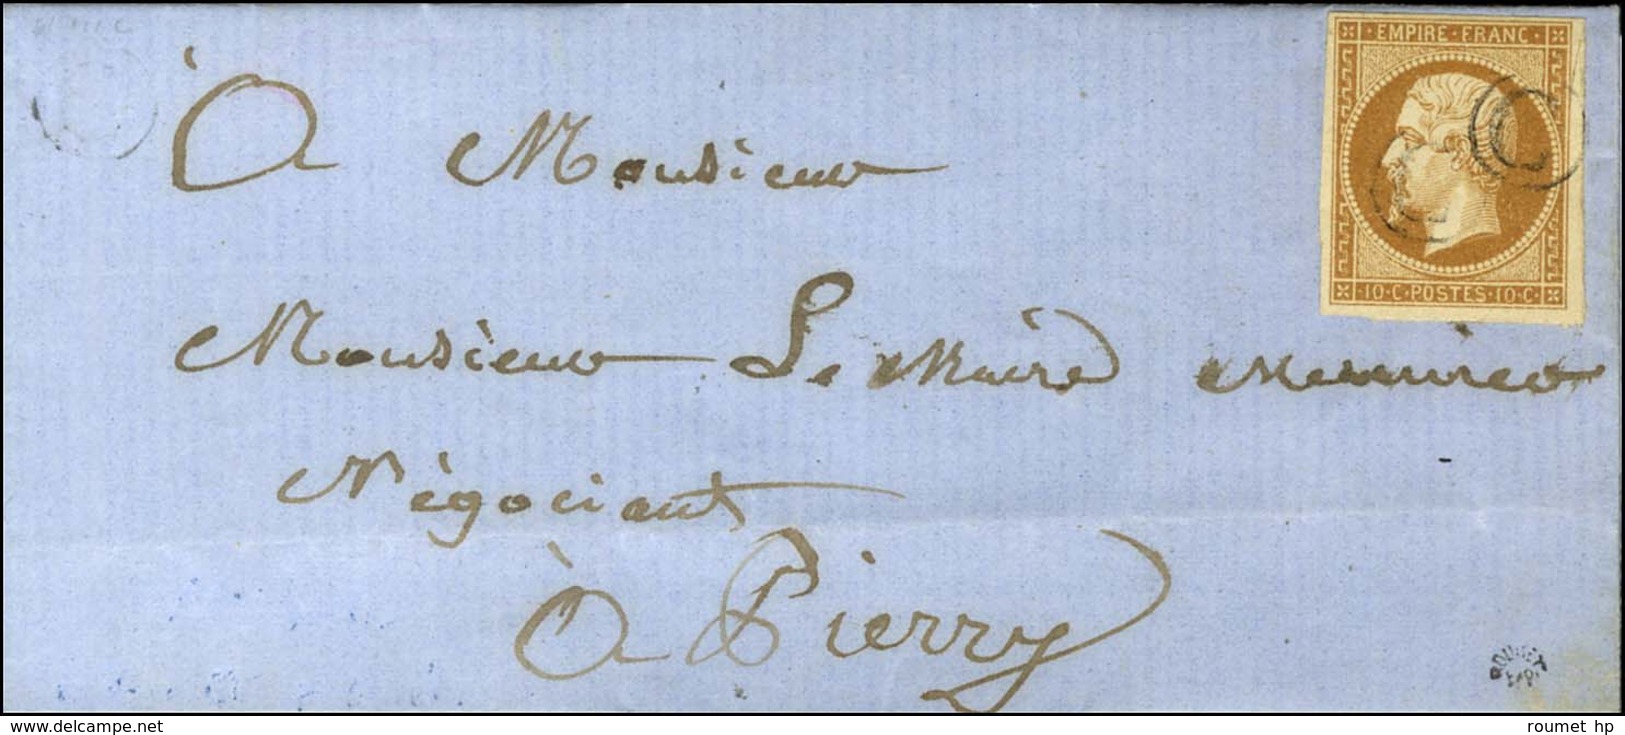 EMPIRE·FRANC·
C
C
10·C·POSTES·10·C·
À Monsieur
Monsieur Le Maire
Négociant
à Pierry
ROUMET
Exp.
roumet hp